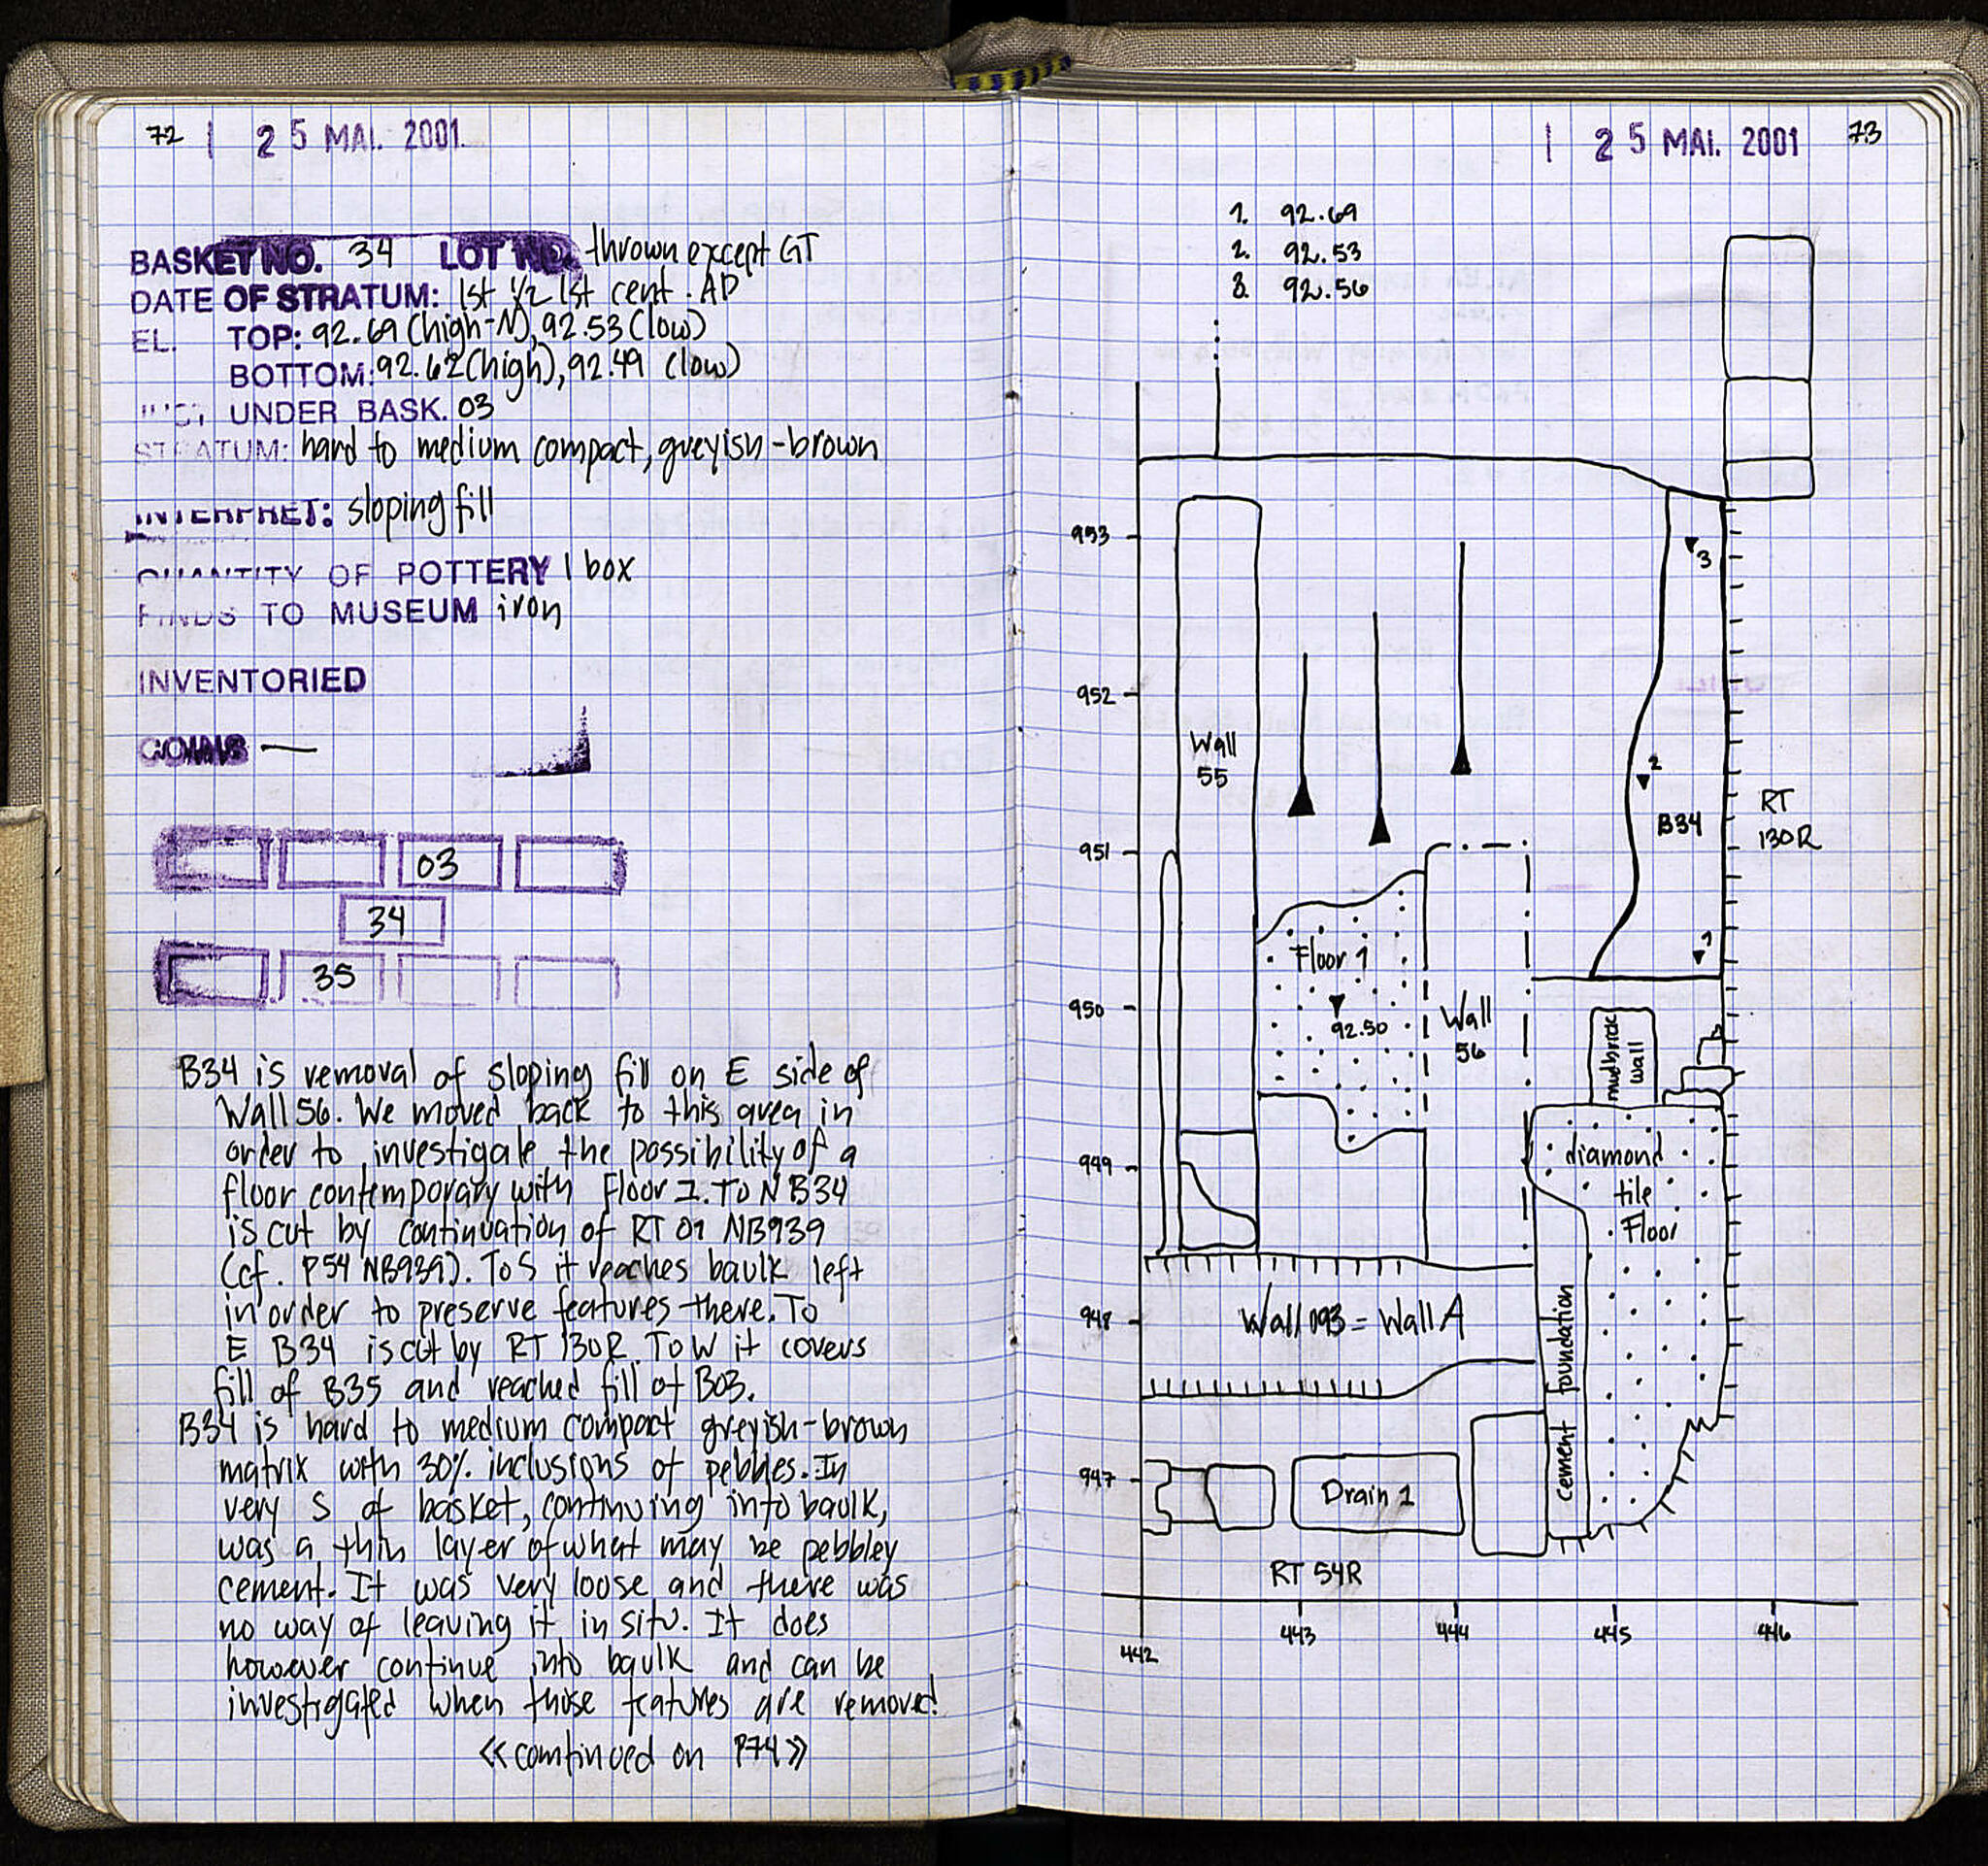 72 | 25 MAI. 2001
BASKET NO. 34 LOT NO. thrown except GT
DATE OF STRATUM: 1st 1/2 1st cent. AD
EL. TOP: 92.69 (high-N), 92.53 (low)
BOTTOM: 92.62 (high), 92.49 (low)
UNDER BASK. 03
STRATUM: hard to medium compact, greyish-brown
INTERPRET: sloping fill
QUANTITY OF POTTERY 1 box
FINDS TO MUSEUM iron
INVENTORIED
COINS —
03
34
35
B34 is removal of sloping fill on E side of
Wall 56. We moved back to this area in
order to investigate the possibility of a
floor contemporary with Floor 1. To N B34
is cut by continuation of RT 01 NB939
(cf. P54 NB939). To S it reaches baulk left
in order to preserve features there. To
E B34 is cut by RT 130R. To W it covers
fill of B35 and reached fill of B03.
B34 is hard to medium compact greyish-brown
matrix with 30% inclusions of pebbles. In
very S of basket, continuing into baulk,
was a thin layer of what may be pebbley
cement. It was very loose and there was
no way of leaving it in situ. It does
however continue into baulk and can be
investigated when those features are removed.
<<continued on P74>>
| 25 MAI. 2001 73
1. 92.69
2. 92.53
3. 92.56
953
3
952
Wall
55
2
B34
RT
130R
951
1
Floor 1
950
92.50
Wall
56
mudbrick
wall
949
diamond
tile
Floor
948
Wall 093 = Wall A
cement foundation
947
Drain 1
RT 54R
442
443
444
445
446